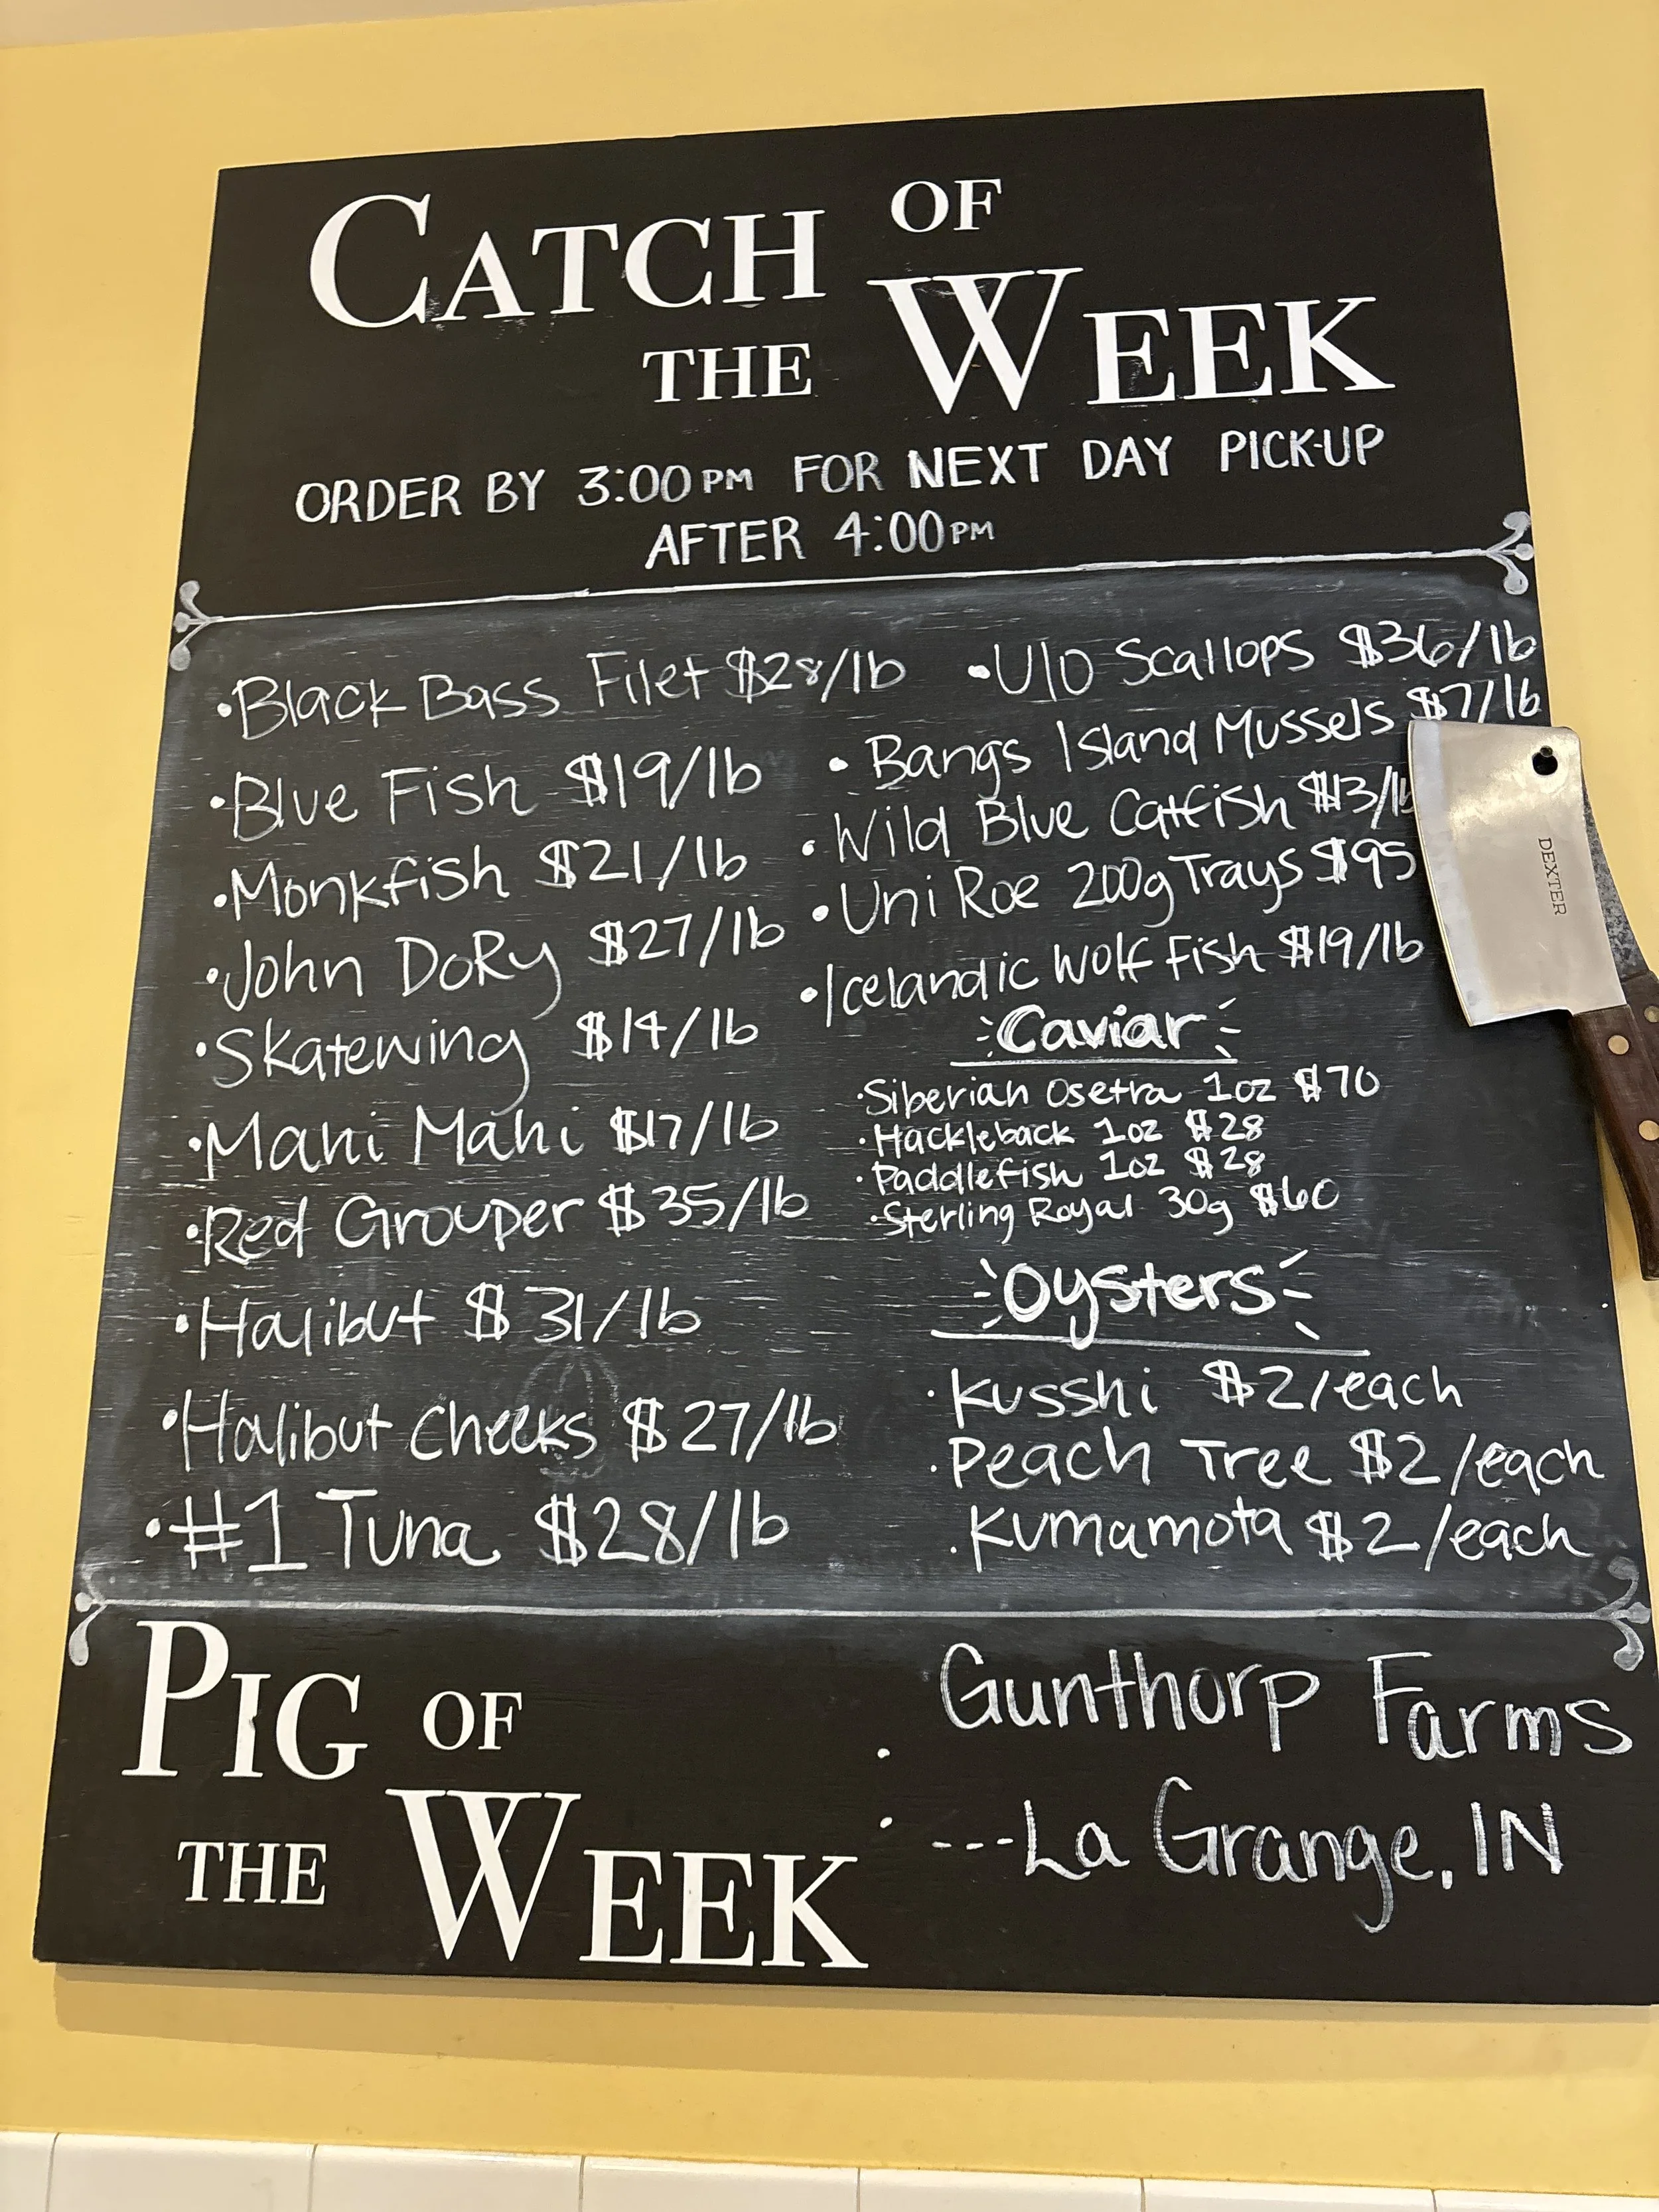 CATCH OF
THE WEEK
ORDER BY 3:00PM FOR NEXT DAY PICK-UP
AFTER 4:00PM
•Black Bass Filet $28/lb
•Blue Fish $19/lb
•Monkfish $21/lb
•John DoRy $27/lb
•Skatewing $14/lb
•Mahi Mahi $17/lb
•Red Grouper $35/lb
•Halibut $31/lb
•Halibut Cheeks $27/lb
•#1 Tuna $28/lb
•U10 Scallops $36/lb
•Bangs Island Mussels $7/lb
•Wild Blue Catfish $13/lb
•Uni Roe 200g Trays $95
•Icelandic Wolf Fish $19/lb
Caviar
•Siberian Osetra 1oz $70
•Hackleback 1oz $28
•Paddlefish 1oz $28
•Sterling Royal 30g $60
Oysters
•Kusshi $2/each
•Peach Tree $2/each
•Kumamota $2/each
DEXTER
PIG OF
THE WEEK
:
Gunthorp Farms
---La Grange, IN